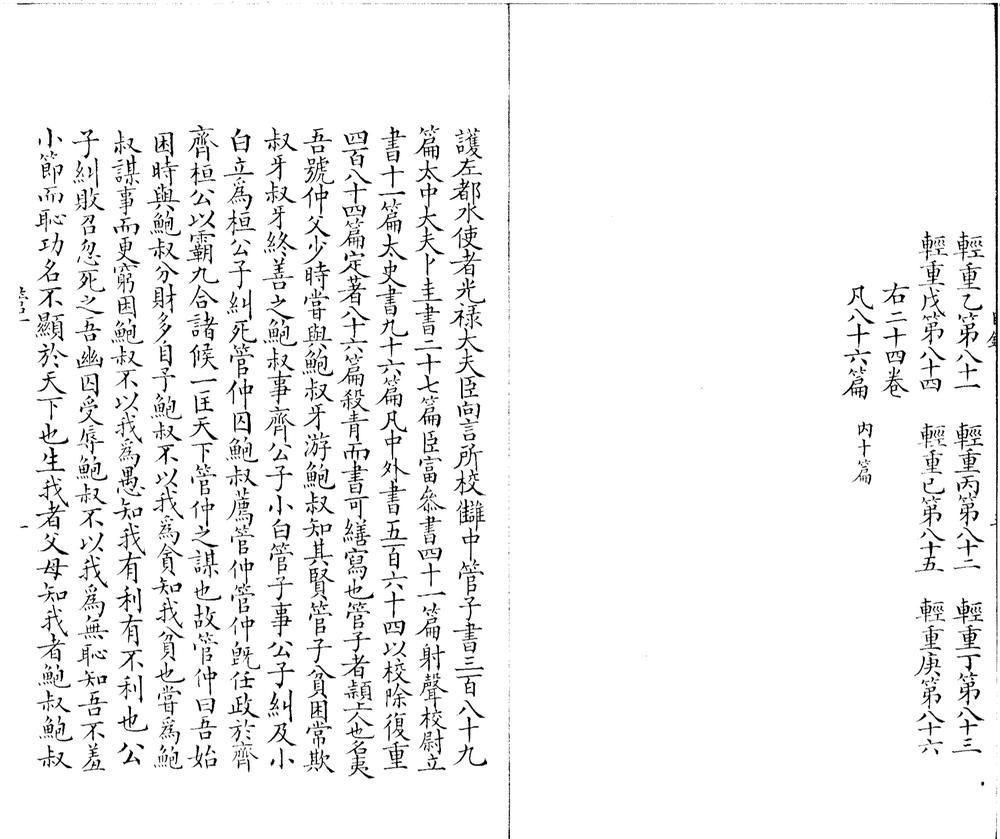 輕重乙第八十一　輕重丙第八十二　輕重丁第八十三
輕重戊第八十四　輕重己第八十五　輕重庚第八十六
右二十四卷
凡八十六篇　内十篇
護左都水使者光禄大夫臣向言所校讎中管子書三百八十九
篇太中大夫卜圭書二十七篇臣富叅書四十一篇射聲校尉立
書十一篇太史書九十六篇凡中外書五百六十四以校除復重
四百八十四篇定著八十六篇殺青而書可繕寫也管子者頴上人也名夷
吾號仲父少時嘗與鮑叔牙游鮑叔知其賢管子貧困常欺
叔牙叔牙終善之鮑叔事齊公子小白管子事公子糾及小
白立爲桓公子糾死管仲囚鮑叔薦管仲管仲旣任政於齊
齊桓公以霸九合諸候一匡天下管仲之謀也故管仲曰吾始
困時與鮑叔分財多自予鮑叔不以我爲貪知我貧也嘗爲鮑
叔謀事而更窮困鮑叔不以我爲愚知我有利有不利也公
子糾敗召忽死之吾幽囚受辱鮑叔不以我爲無恥知吾不羞
小節而恥功名不顯於天下也生我者父母知我者鮑叔鮑叔